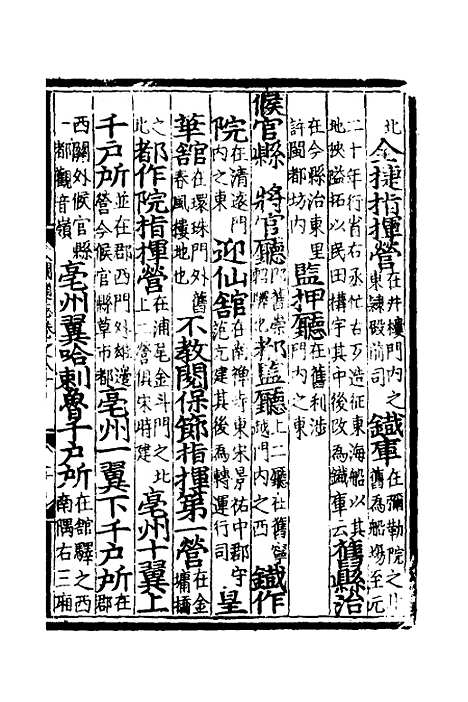 北全捷指揮營在井樓門内之東隸殿前司鐵庫在彌勒院之北舊為船場至元
二十年行省右丞忙古䚟造征東海船以其地峽隘拓以民田構宇其中後改為鐵庫云舊縣治
在今縣治東里許閩都坊内監押廳在舊利涉門内之東
候官縣將官廳即舊都監廳上二廳俱舊寧越門内之西鐵作
院在清遠門内之東迎仙館在南禪寺東宋景祐中郡守范亢建其後為轉運行司皇
華館在環珠門外舊春風樓地也不教閱保節指揮第一營在金墉橋
之北都作院指揮營在浦尾金斗門之北上二營俱宋時建亳州十翼上
千戶所並在郡西門外緜邊營今候官縣草市都亳州一翼下千戶所在郡
西關外候官縣一都觀音嶺亳州翼哈剌魯千戶所在館驛之西南隅右三廂